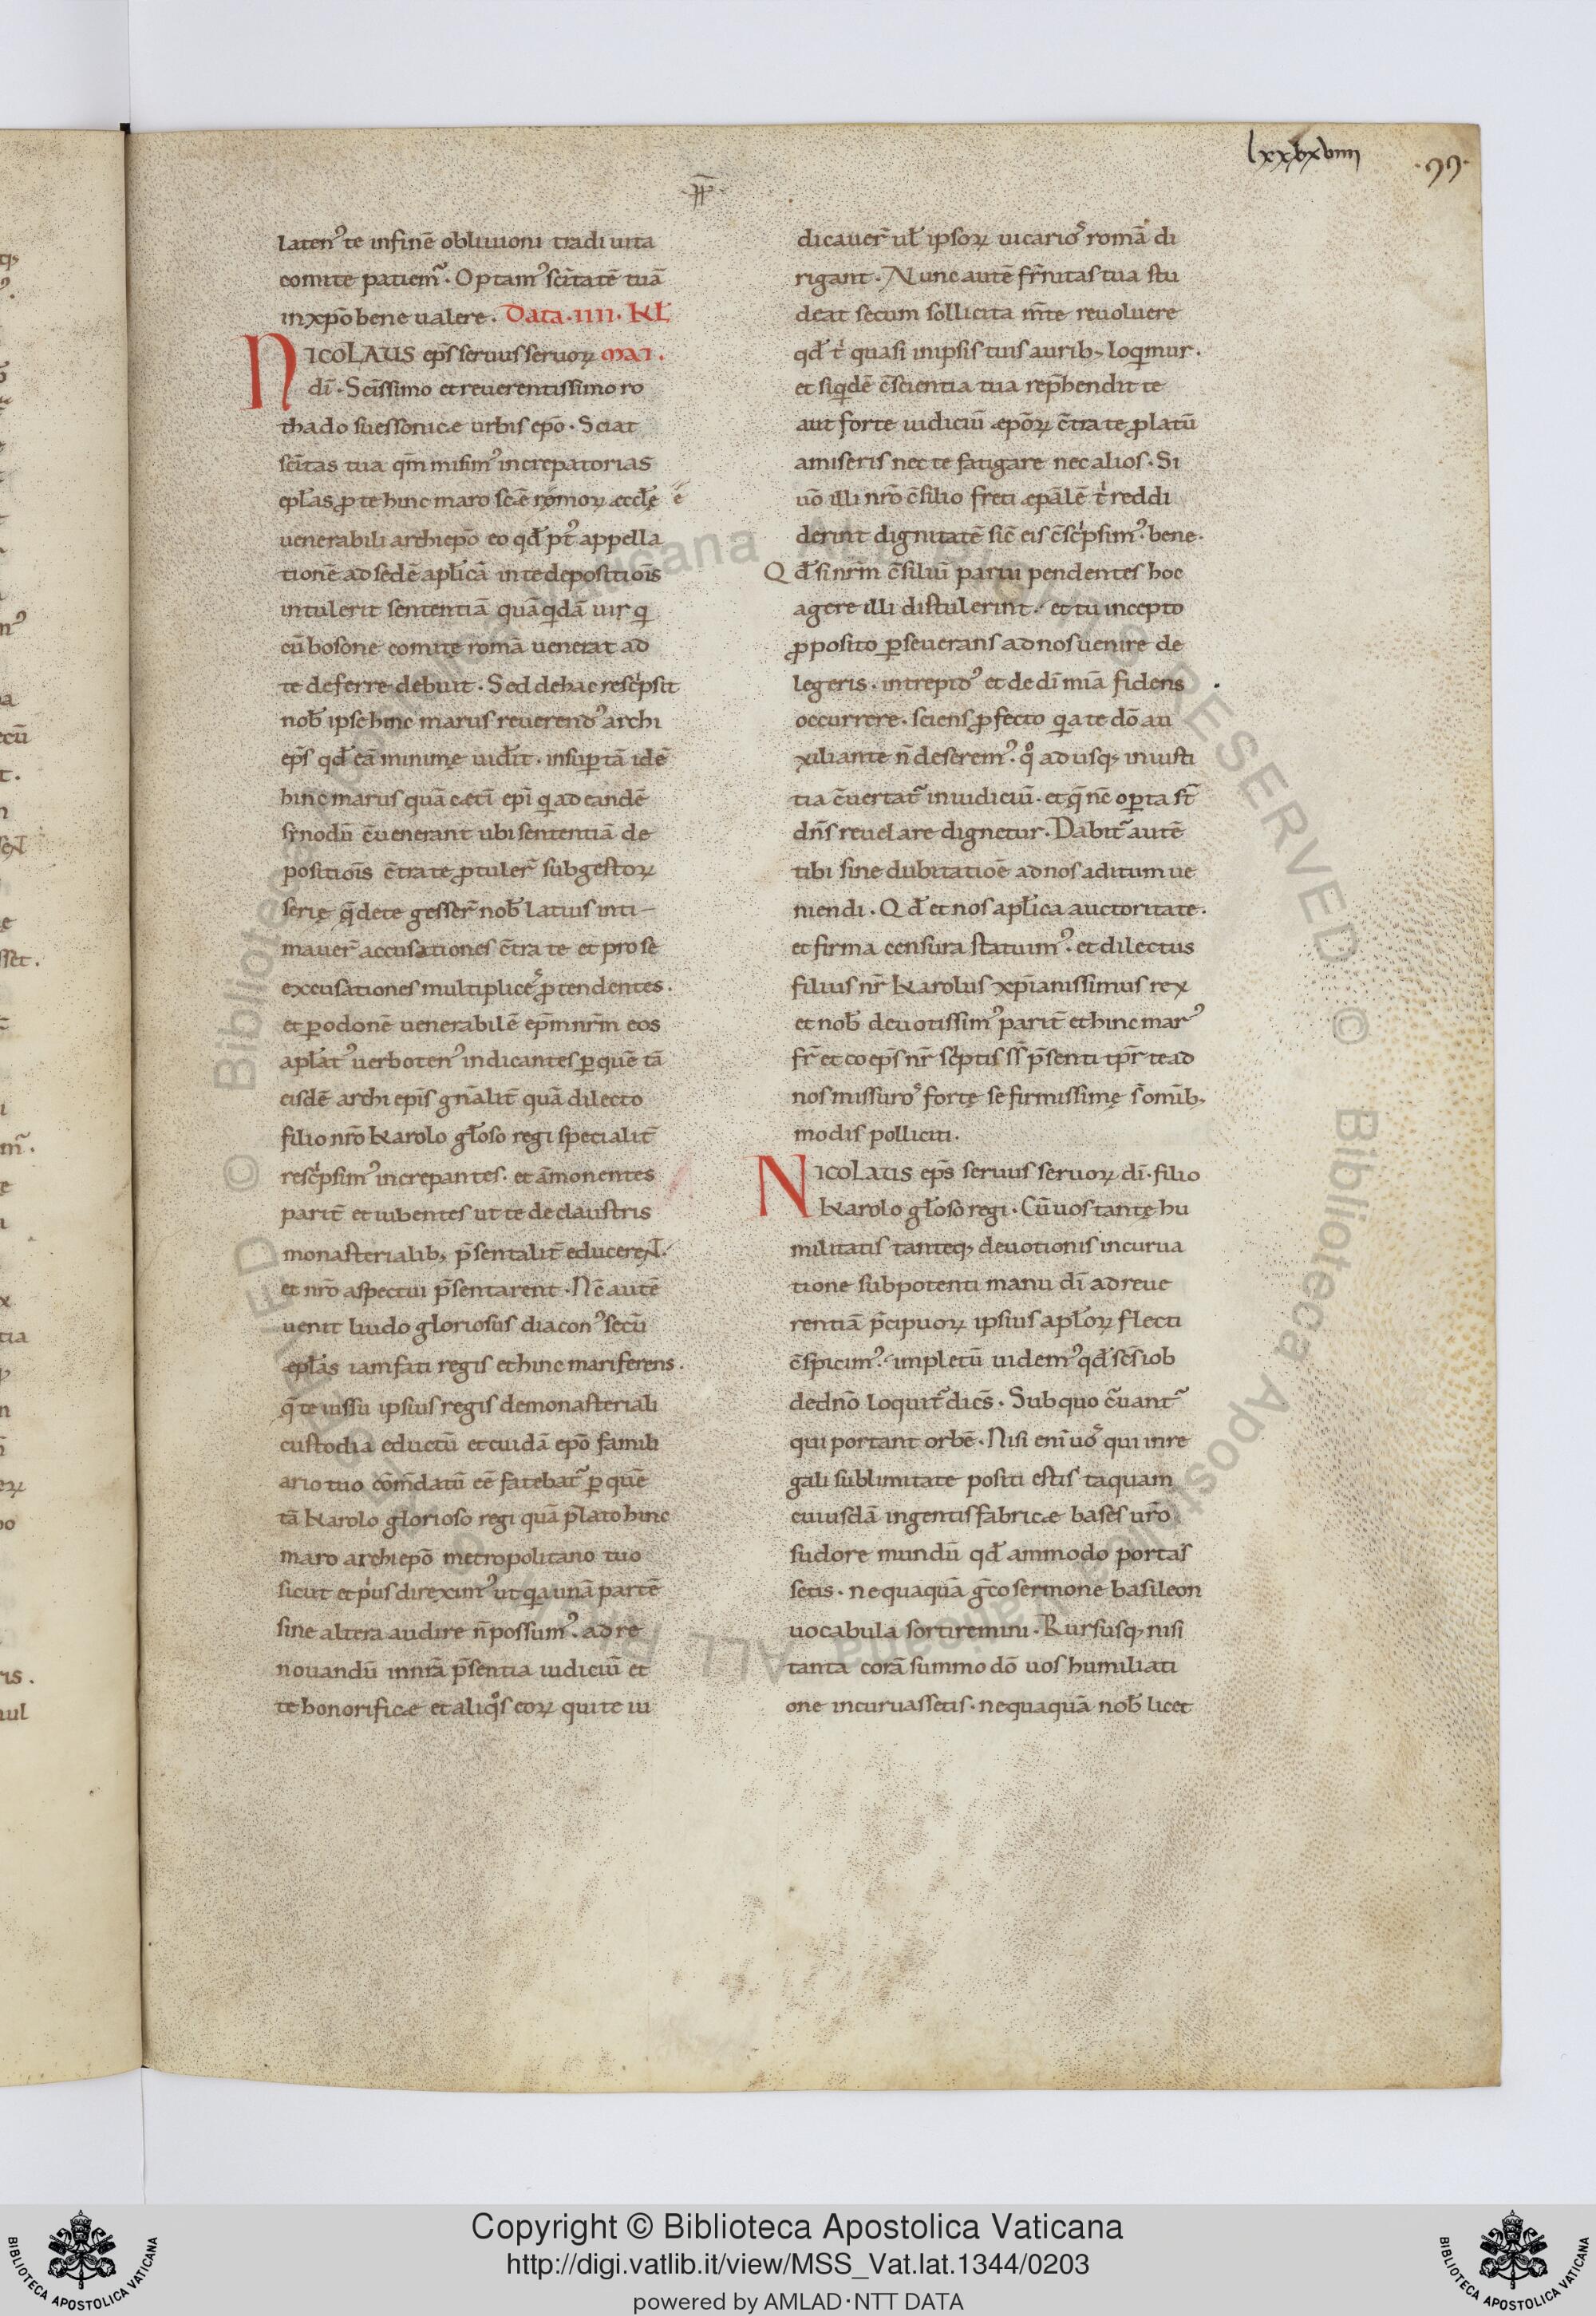 lxxxxviiii
·99·
laten᾽ te infinē obliuioni tradi uita
comite patiem᷒. Optam᾽ scītatē tuā
inxp̄o bene ualere. Data .IIII. KL̄
NICOLAUS ep̄s seruus seruoꝝ MAI.
dī. Scīssimo et reuerentissimo ro
thado suessonicæ urbis ep̄o. Sciat
scītas tua qm̄ misim᾽ increpatorias
epl̄as ꝓ te hinc maro scǣ romoꝝ æccl̄ę
uenerabili archiep̄o eo qđ pt᾽ appella
tionē ad sedē apl̄icā in te depositiōis
intulerit sententiā quā qdā uir q
cū bosone comite romā uenerat ad
te deferre debuit. Sed de hac rescͥpsit
nob̄ ipse hinc marus reuerend᾽ archi
ep̄s qđ eā minimę uidīt. insuꝑ tā idē
hinc marus quā cetī epī qi ad eandē
sẏnodū c̄uenerant ubi sententiā de
positiōis c̄tra te ꝓtuler̄ subgestoꝝ
serię q̄ de te gesser̄ nob̄ latius inti-
mauer̄ accusationes c̄tra te et pro se
excusationes multiplices ꝓtendentes.
et ꝑ odonē uenerabilē ep̄m nr̄m eos
apl̄at᾽ uerboten᾽ indicantes ꝑ quē tā
eisdē archi epīs gn̄alit̄ quā dilecto
filio nr̄o karolo gl̄oso regi specialit̄
rescͥpsim᾽ increpantes. et āmonentes
parit̄ et iubentes ut te de claustris
monasterialib; p̄sentalit̄ educerent.
et nr̄o aspectui p̄sentarent. Nc̄ autē
uenit liudo gloriosus diacon᾽ secū
æpl̄as iam fati regis et hinc mari ferens.
q̄ te iussu ipsius regis de monasteriali
custodia eductū et cuidā ep̄o famili
ario tuo cōm̄datū eē fatebat᷒ ꝑ quē
tā karolo glorioso regi quā p̄lato hinc
maro archiep̄o metropolitano tuo
sicut et pͥus direxim᾽ ut qa unā partē
sine altera audire n̄ possum᾽. ad re
nouandū innr̄ā p̄sentia iudiciū et
te honorificæ et aliqͦs eoꝝ qui te iu
dicauer̄ ul̄ ipsoꝝ uicarios romā di
rigant. Nunc autē fr̄nitas tua stu
deat secum sollicita m̄te reuoluere
qđ tͥ quasi inipsis tuis aurib; loqͥmur.
et siqͥdē c̄scientia tua rep̄hendit te
aut forte iudiciū æpōꝝ c̄tra te ꝓlatū
amiseris nec te fatigare nec alios. Si
uō illi nr̄o c̄silio freti æpālē tͥ reddi
derint dignitatē sic̄ eis c̄scͥpsim᾽. bene.
Qđ si nr̄m c̄siliū parui pendentes hoc
agere illi distulerint. et tu incepto
ꝓposito ꝑseuerans ad nos uenire de
legeris. intrepid᾽ et de dī miā fidens
occurrere. sciens ꝓfecto qͥa te dō au
xiliante n̄ deserem᾽. qͦ ad usq; iniusti
tia c̄uertat᷒ in iudiciū. et q̄ nc̄ oꝑta st̄
dn̄s reuelare dignetur. Dabit᷒ autē
tibi sine dubitatiōe ad nos aditum ue
niendi. Qđ et nos apl̄ica auctoritate.
et firma censura statuim᾽. et dilectus
filius nr̄ karolus xp̄ianissimus rex
et nob̄ deuotissim᾽ parit̄ et hinc mar᾽
fr̄ et coep̄s nr̄ scͥptis ss̄ p̄senti tp̄r te ad
nos missuros forte se firmissimę s̄ omib;
modis polliciti.
NICOLAUS ep̄s seruus seruoꝝ dī. filio
karolo gl̄oso regi. Cū uos tantę hu
militatis tanteq; deuotionis incurua
tione sub potenti manu dī ad reue
rentiā p̄cipuoꝝ ipsius apl̄oꝝ flecti
c̄spicim᾽. impletū uidem᾽ qđ scs̄ iob
de dn̄o loquit᷒ dicēs. Sub quo c̄uant᷒
qui portant orbē. Nisi enī uos qui inre
gali sublimitate positi estis taquam
cuiusdā ingentis fabricæ bases ur̄o
sudore mundū qđ ammodo portas
setis. nequaquā gc̄o sermone basileon
uocabula sortiremini. Rursusq; nisi
tanta corā summo dō uos humiliati
one incuruassetis. nequaquā nob̄ licet
Copyright © Biblioteca Apostolica Vaticana
http://digi.vatlib.it/view/MSS_Vat.lat.1344/0203
powered by AMLAD·NTT DATA